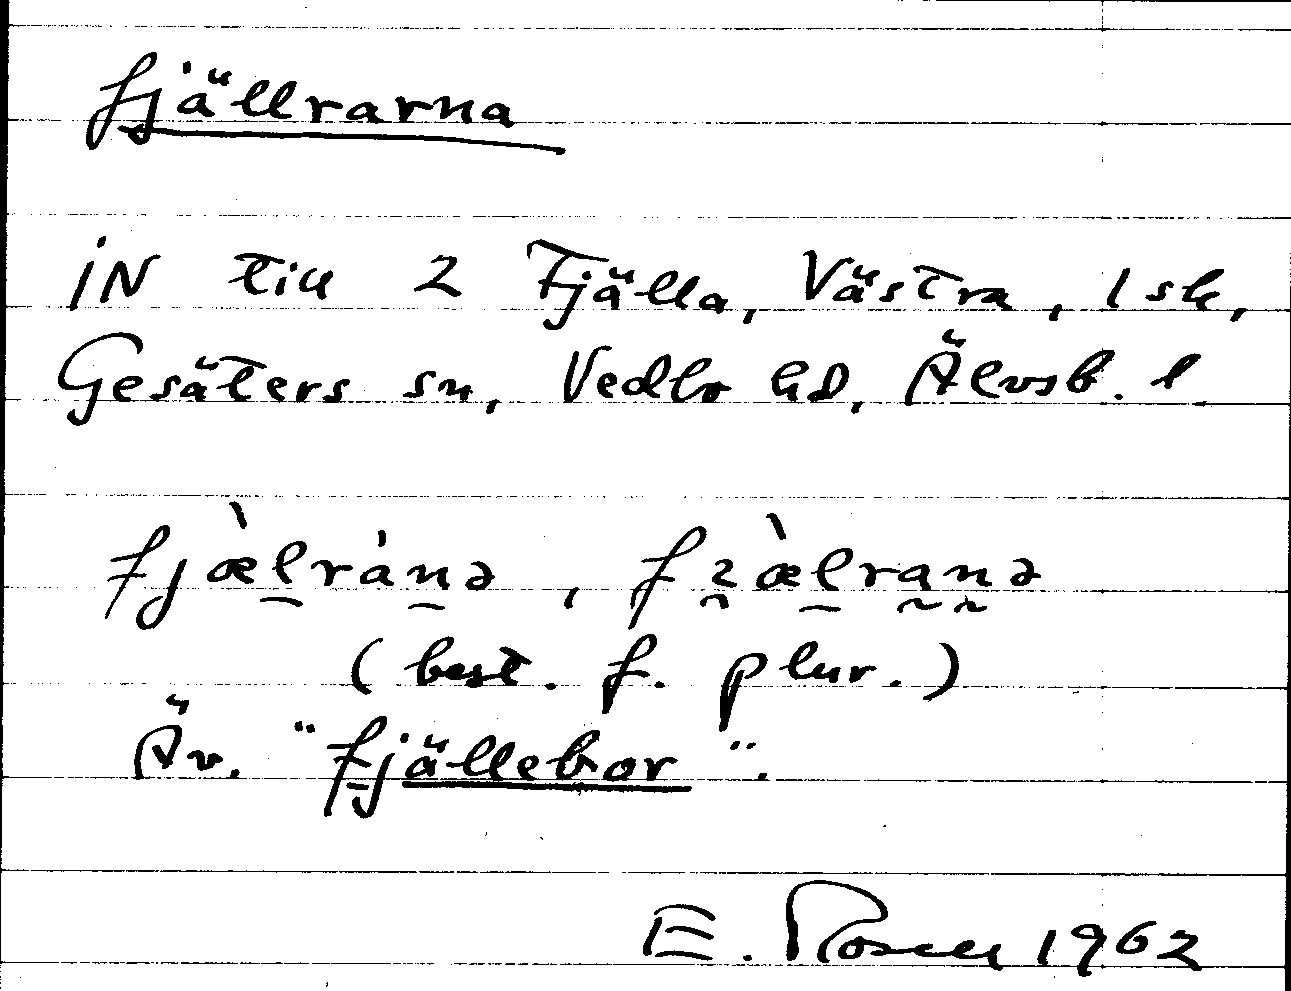 fjällrarna
iN till 2 Fjälla, Västra, 1 sk,
Gesäters sn, Vedbo hd, Älvsb. l.
fjæ̀l̠rȧn̠ə, fɿæ̀l̠ra̰n̰ə
(best. f. plur.)
Äv. "fjällebor".
E. Rosell 1962